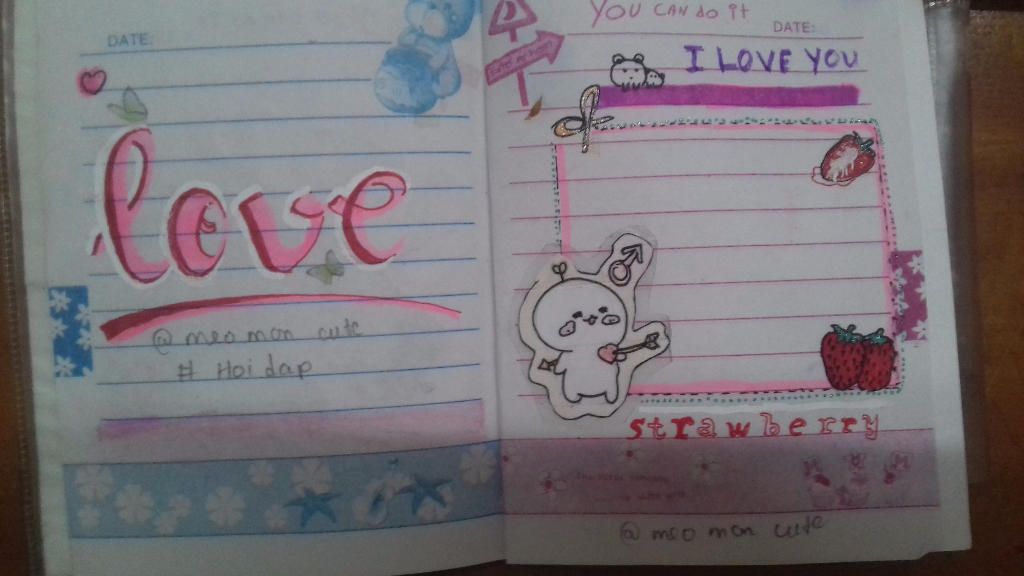 DATE:
love
@meo mon cute
# Hoi dap
YOU CAN DO IT
DATE:
I LOVE YOU
strawberry
@meo mon cute